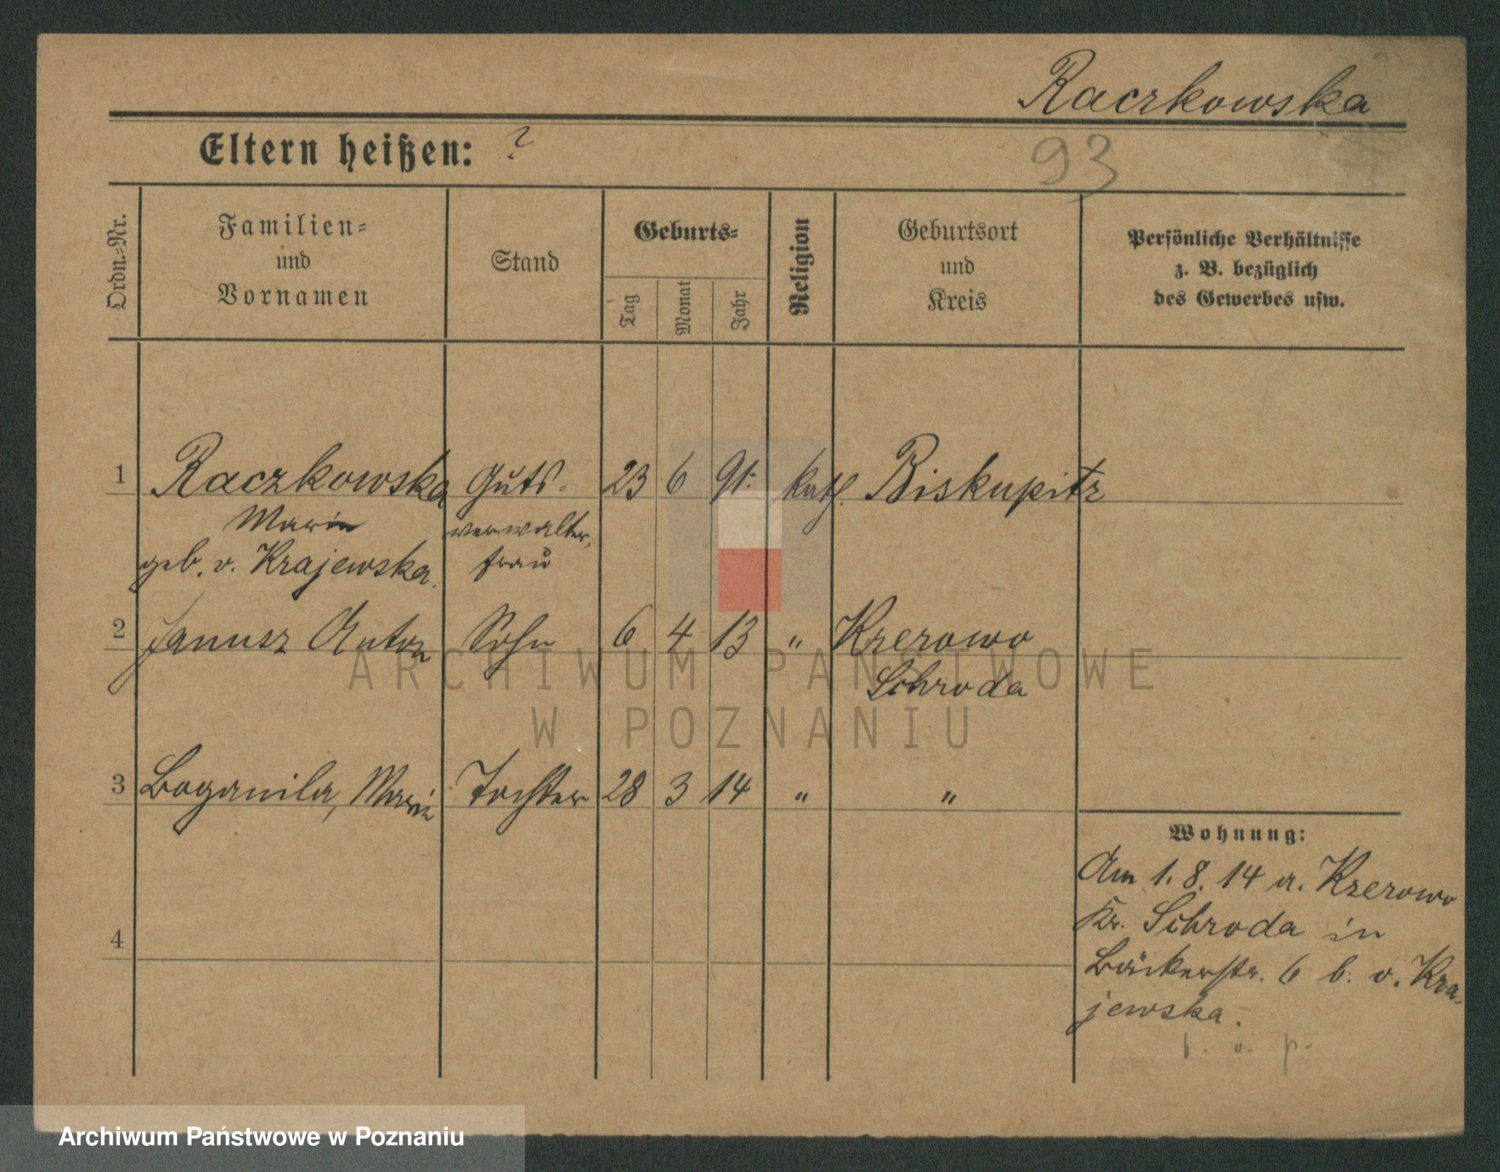 Raczkowska
Eltern heißen: ?
93
Ordn.=Nr.
Familien=
und
Vornamen
Stand
Geburts=
Tag
Monat
Jahr
Religion
Geburtsort
und
Kreis
Persönliche Verhältnisse
z. B. bezüglich
des Gewerbes usw.
1 Raczkowska Guts- 23 6 91. kath. Biskupitz
Marie verwalter,
geb. v. Krajewska. frau
2 Janusz Anton Sohn 6 4 13 " Krerowo
Schroda
3 Boganila, Marie Tochter 28 3 14 " "
Wohnung:
Am 1. 8. 14 a. Krerowo
Kr. Schroda in
4
Bäckerstr. 6 b. v. Kra-
jewska.
ARCHIWUM PAŃSTWOWE
W POZNANIU
Archiwum Państwowe w Poznaniu